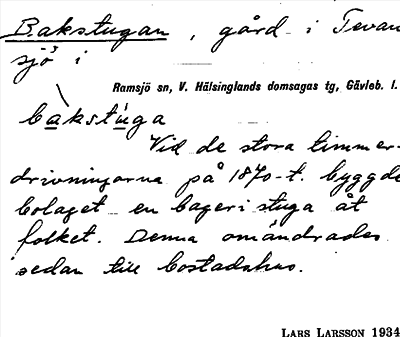 Bakstugan, gård i Tevan
sjö i
Ramsjö sn, V. Hälsinglands domsagas tg, Gävleb. l.
bakstuga
Vid de stora timmer-
drivningarna på 1870-t. byggde
bolaget en bageristuga åt
folket. Denna omändrades
sedan till bostadshus.
LARS LARSSON 1934